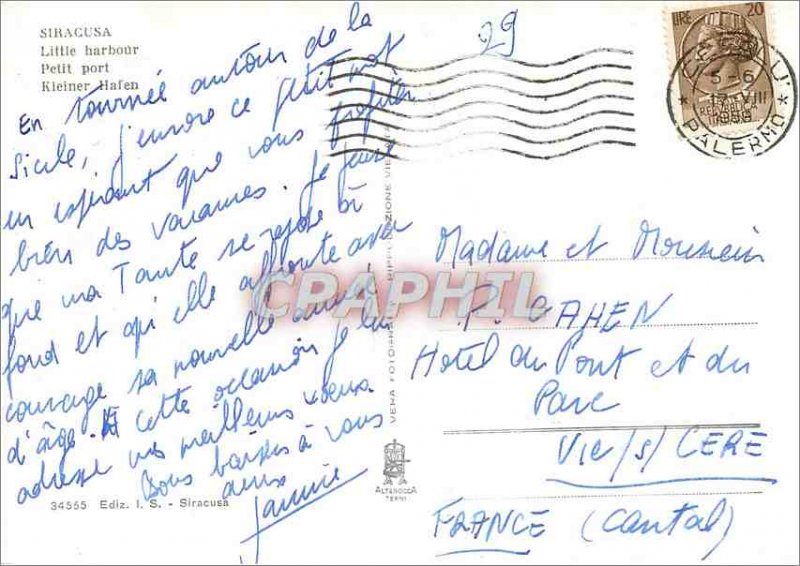 SIRACUSA
Little harbour
Petit port
Kleiner Hafen
29
LIRE 20
CEFALU'
5-6
17 VIII
PALERMO
En tournée autour de la
Sicile, j'envoie ce petit mot
en espérant que vous profitez
bien des vacances. Je pense
que ma Tante se repose à
fond et qu'elle affronte avec
courage sa nouvelle année
d'âge. A cette occasion je lui
adresse mes meilleurs voeux.
Bons baisers à vous
deux
Jannie
34555 Ediz. I. S. - Siracusa
VERA FOTOGRAFIA RIPRODUZIONE VIETATA
ALTEROCCA
TERNI
CPAPHIL
Madame et Monsieur
P. CAHEN
Hotel du Pont et du
Parc
VIC/S/CERE
FRANCE (Cantal)